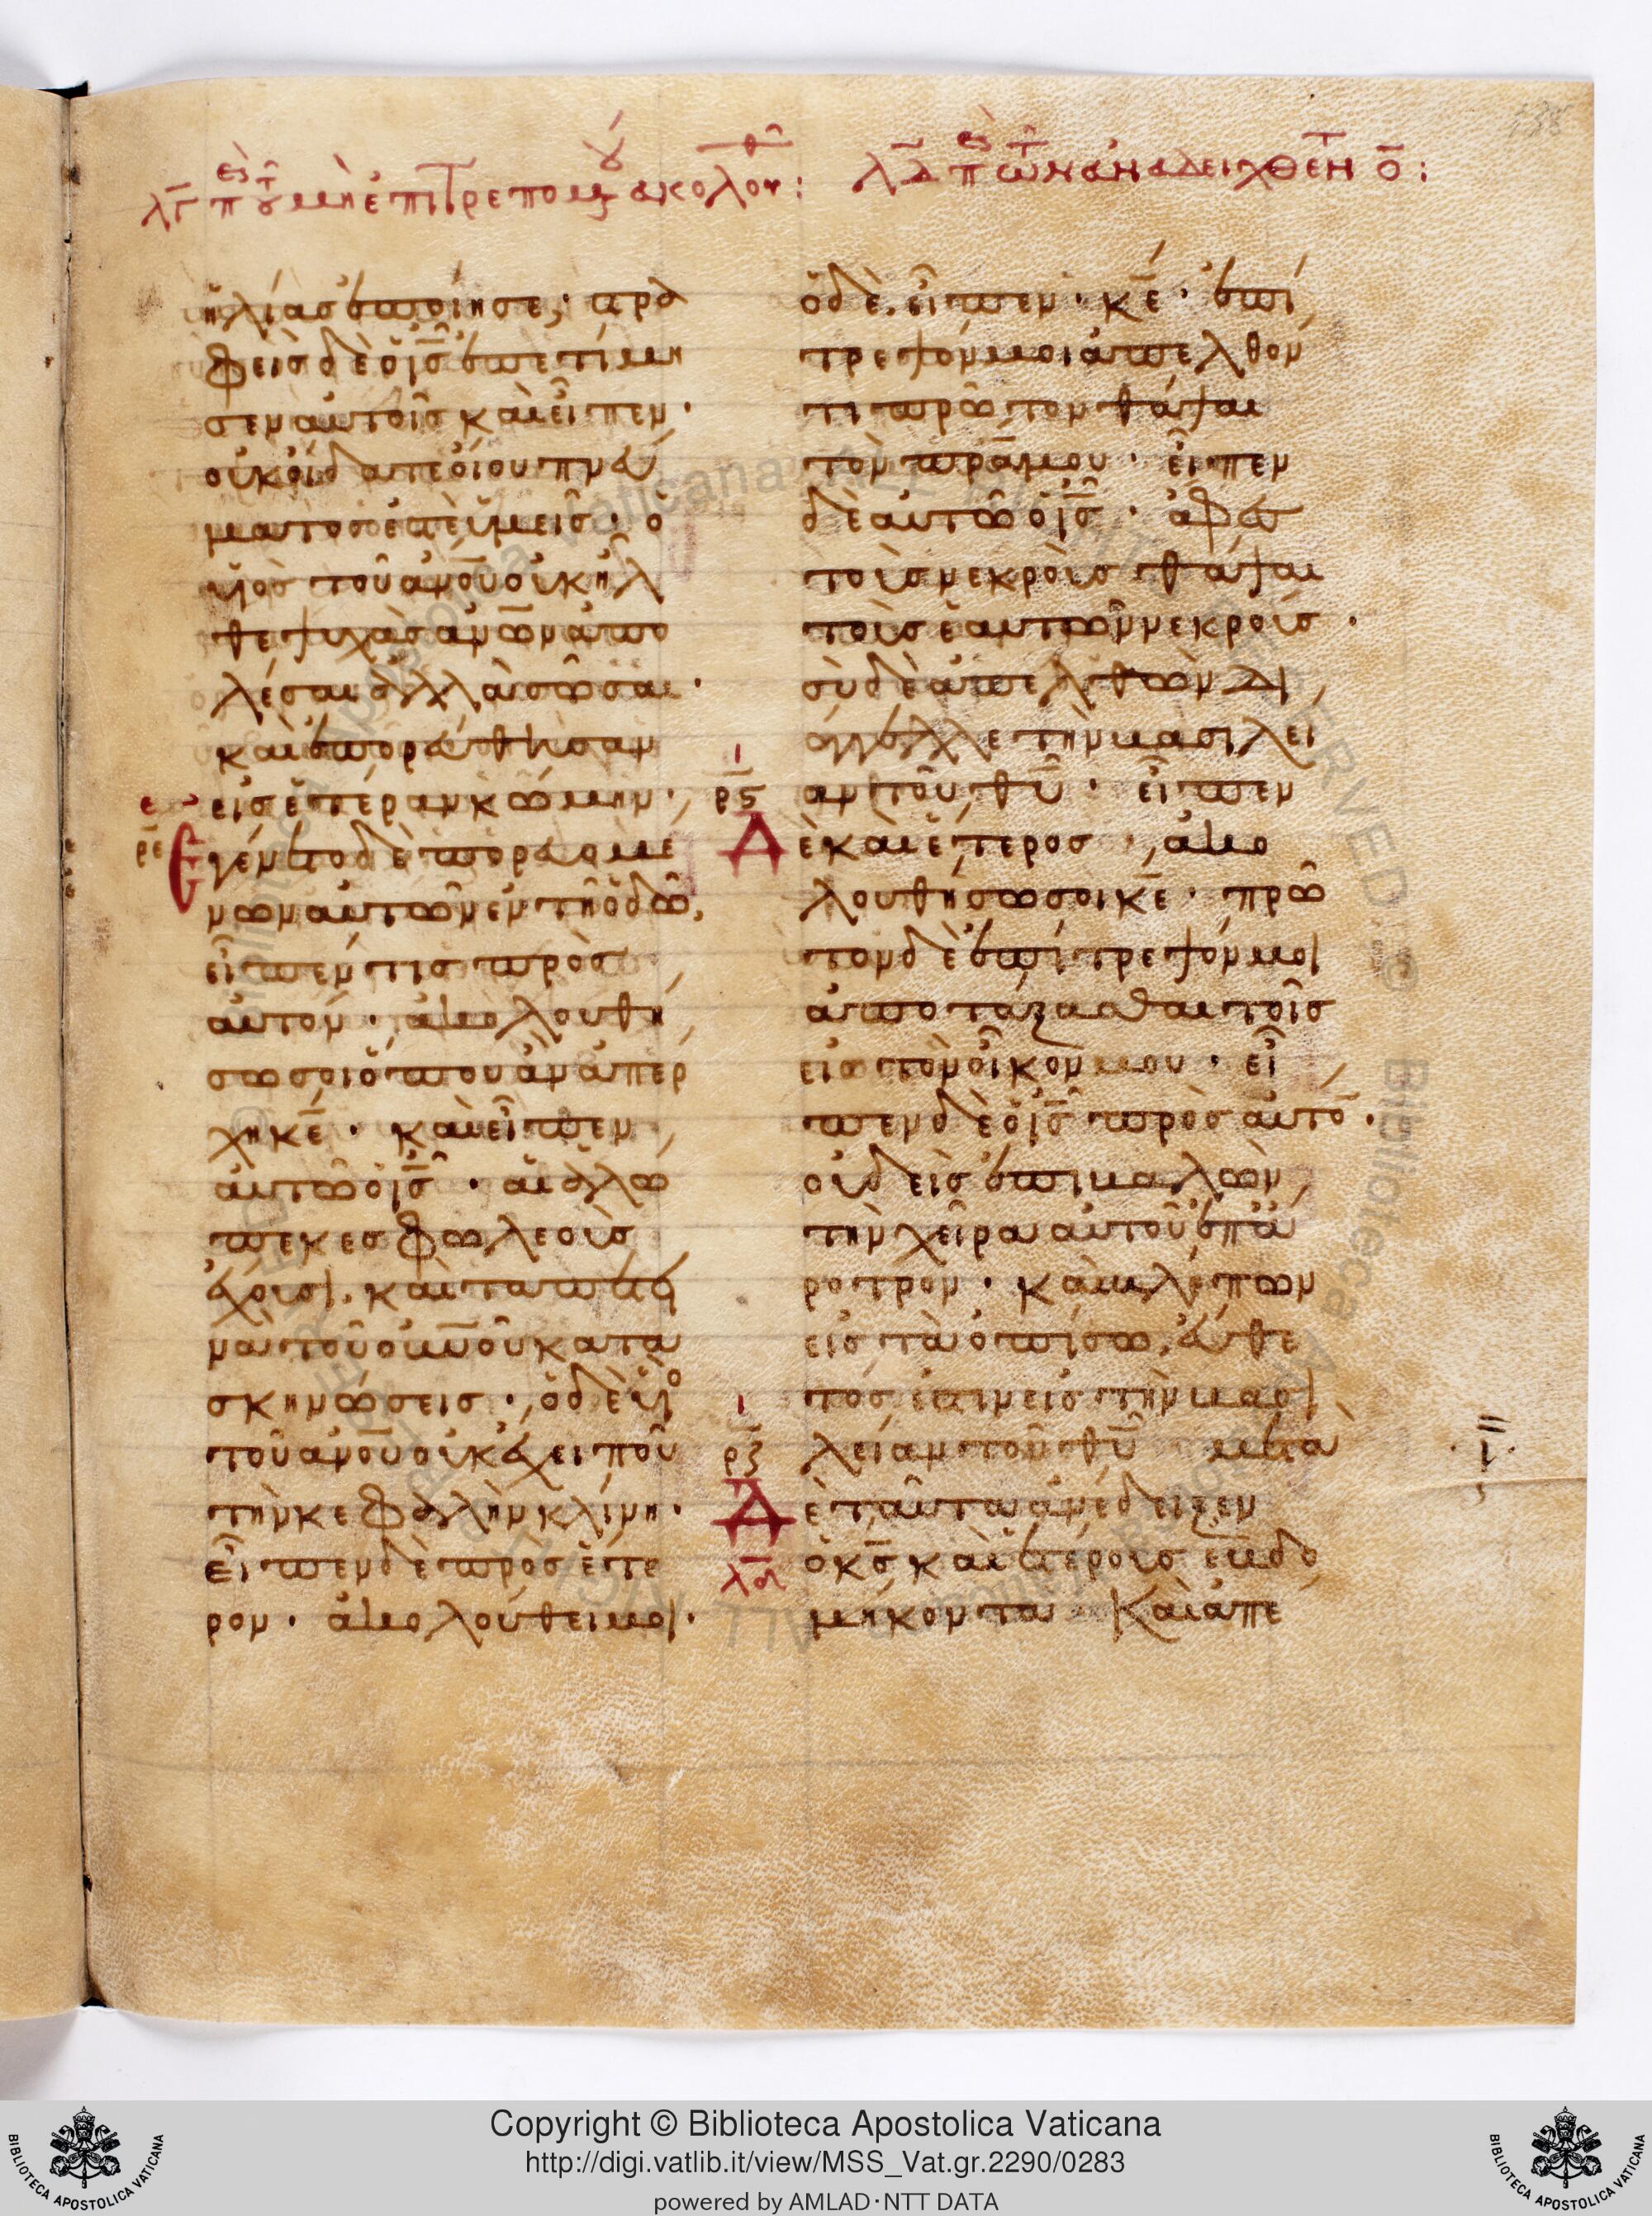 λγ π τ μὴ ἐπιτρεπομ ακολου :
λδ π τῶν ἀναδειχθεντ ο :
ἠλίας ἐποίησε, στρα
φεὶς δὲ ὁ ις ἐπετίμη
σεν αὐτοῖς καὶ εἶπεν·
οὐκ οἴδατε οἵου πνεύ
ματος ἐστὲ ὑμεῖς· ὁ
υἱὸς τοῦ ανου οὐκ ἦλ
θε ψυχὰς ανων ἀπο
λέσαι ἀλλὰ σῶσαι·
καὶ ἐπορεύθησαν
εἰς ἑτέραν κώμην·
ρε
Εγένετο δὲ πορευομέ
νων αὐτῶν ἐν τῇ ὁδῶ,
εἶπέν τις πρὸς
αὐτόν· ἀκολουθή
σω σοι ὅπου ἂν ἀπέρ
χη κε· καὶ εἶπεν
αὐτῶ ὁ ις· αἱ ἀλώ
πεκες φωλεοὺς
ἔχουσι, καὶ τὰ πετει
νὰ τοῦ ουνου κατα
σκηνώσεις· ὁ δὲ υἱὸ
τοῦ ανου οὐκ ἔχει ποῦ
τὴν κεφαλὴν κλίνη·
εἶπεν δὲ πρὸς ἕτε
ρον· ἀκολούθει μοι·
ὁ δὲ εἶπεν· κε· ἐπί
τρεψόν μοι ἀπελθόν
τι πρῶτον θάψαι
τὸν πρα μου· εἶπεν
δὲ αὐτῶ ὁ ις· ἄφες
τοὺς νεκροὺς θάψαι
τοὺς ἑαυτῶν νεκρούς·
σὺ δὲ ἀπελθὼν δι
άγγελλε τὴν βασιλεί
ρϛ
αν τοῦ θυ· εἶπεν
Δὲ καὶ ἕτερος, ἀκο
λουθήσω σοι κε· πρῶ
τον δὲ ἐπίτρεψόν μοι
ἀποτάξασθαι τοῖς
εἰς τὸν οἶκον μου· εἶ
πεν δὲ ὁ ις πρὸς αὐτό·
οὐδεὶς ἐπιβαλὼν
τὴν χεῖρα αὐτοῦ ἐπ' ἄ
ροτρον· καὶ βλέπων
εἰς τὰ ὀπίσω, εὔθε
τός ἐστιν εἰς τὴν βασι
ρζ
λείαν τοῦ θυ μετα
Δὲ ταῦτα ἀνέδειξεν
λδ
ὁ κς καὶ ἑτέρους ἑβδο
μήκοντα Καὶ ἀπέ
Copyright © Biblioteca Apostolica Vaticana
http://digi.vatlib.it/view/MSS_Vat.gr.2290/0283
powered by AMLAD·NTT DATA
BIBLIOTECA APOSTOLICA VATICANA
BIBLIOTECA APOSTOLICA VATICANA